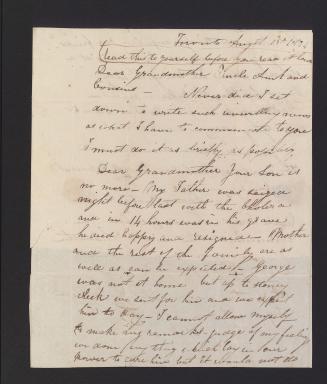 Toronto Augt
(read this to yourself before you read it
Dear Grandmother Uncle Aunt and
Cousins –
Never did I set
down to write such unwelcome news
as what I have to communicate to you
I must do it as briefly as possible
Dear Grandmother Your Son is
no more – My Father was seized
night before last with the Cholera
and in 14 hours was in his grave
he died happy and resigned – Mother
and the rest of the family are as
well as can be expected – George
was not at home but up to Stoney
Creek we sent for him and we expect
him to day – I cannot allow myself
to make any remarks – judge of my feelings
we done any thing which lay in our
power to save him but it would not do